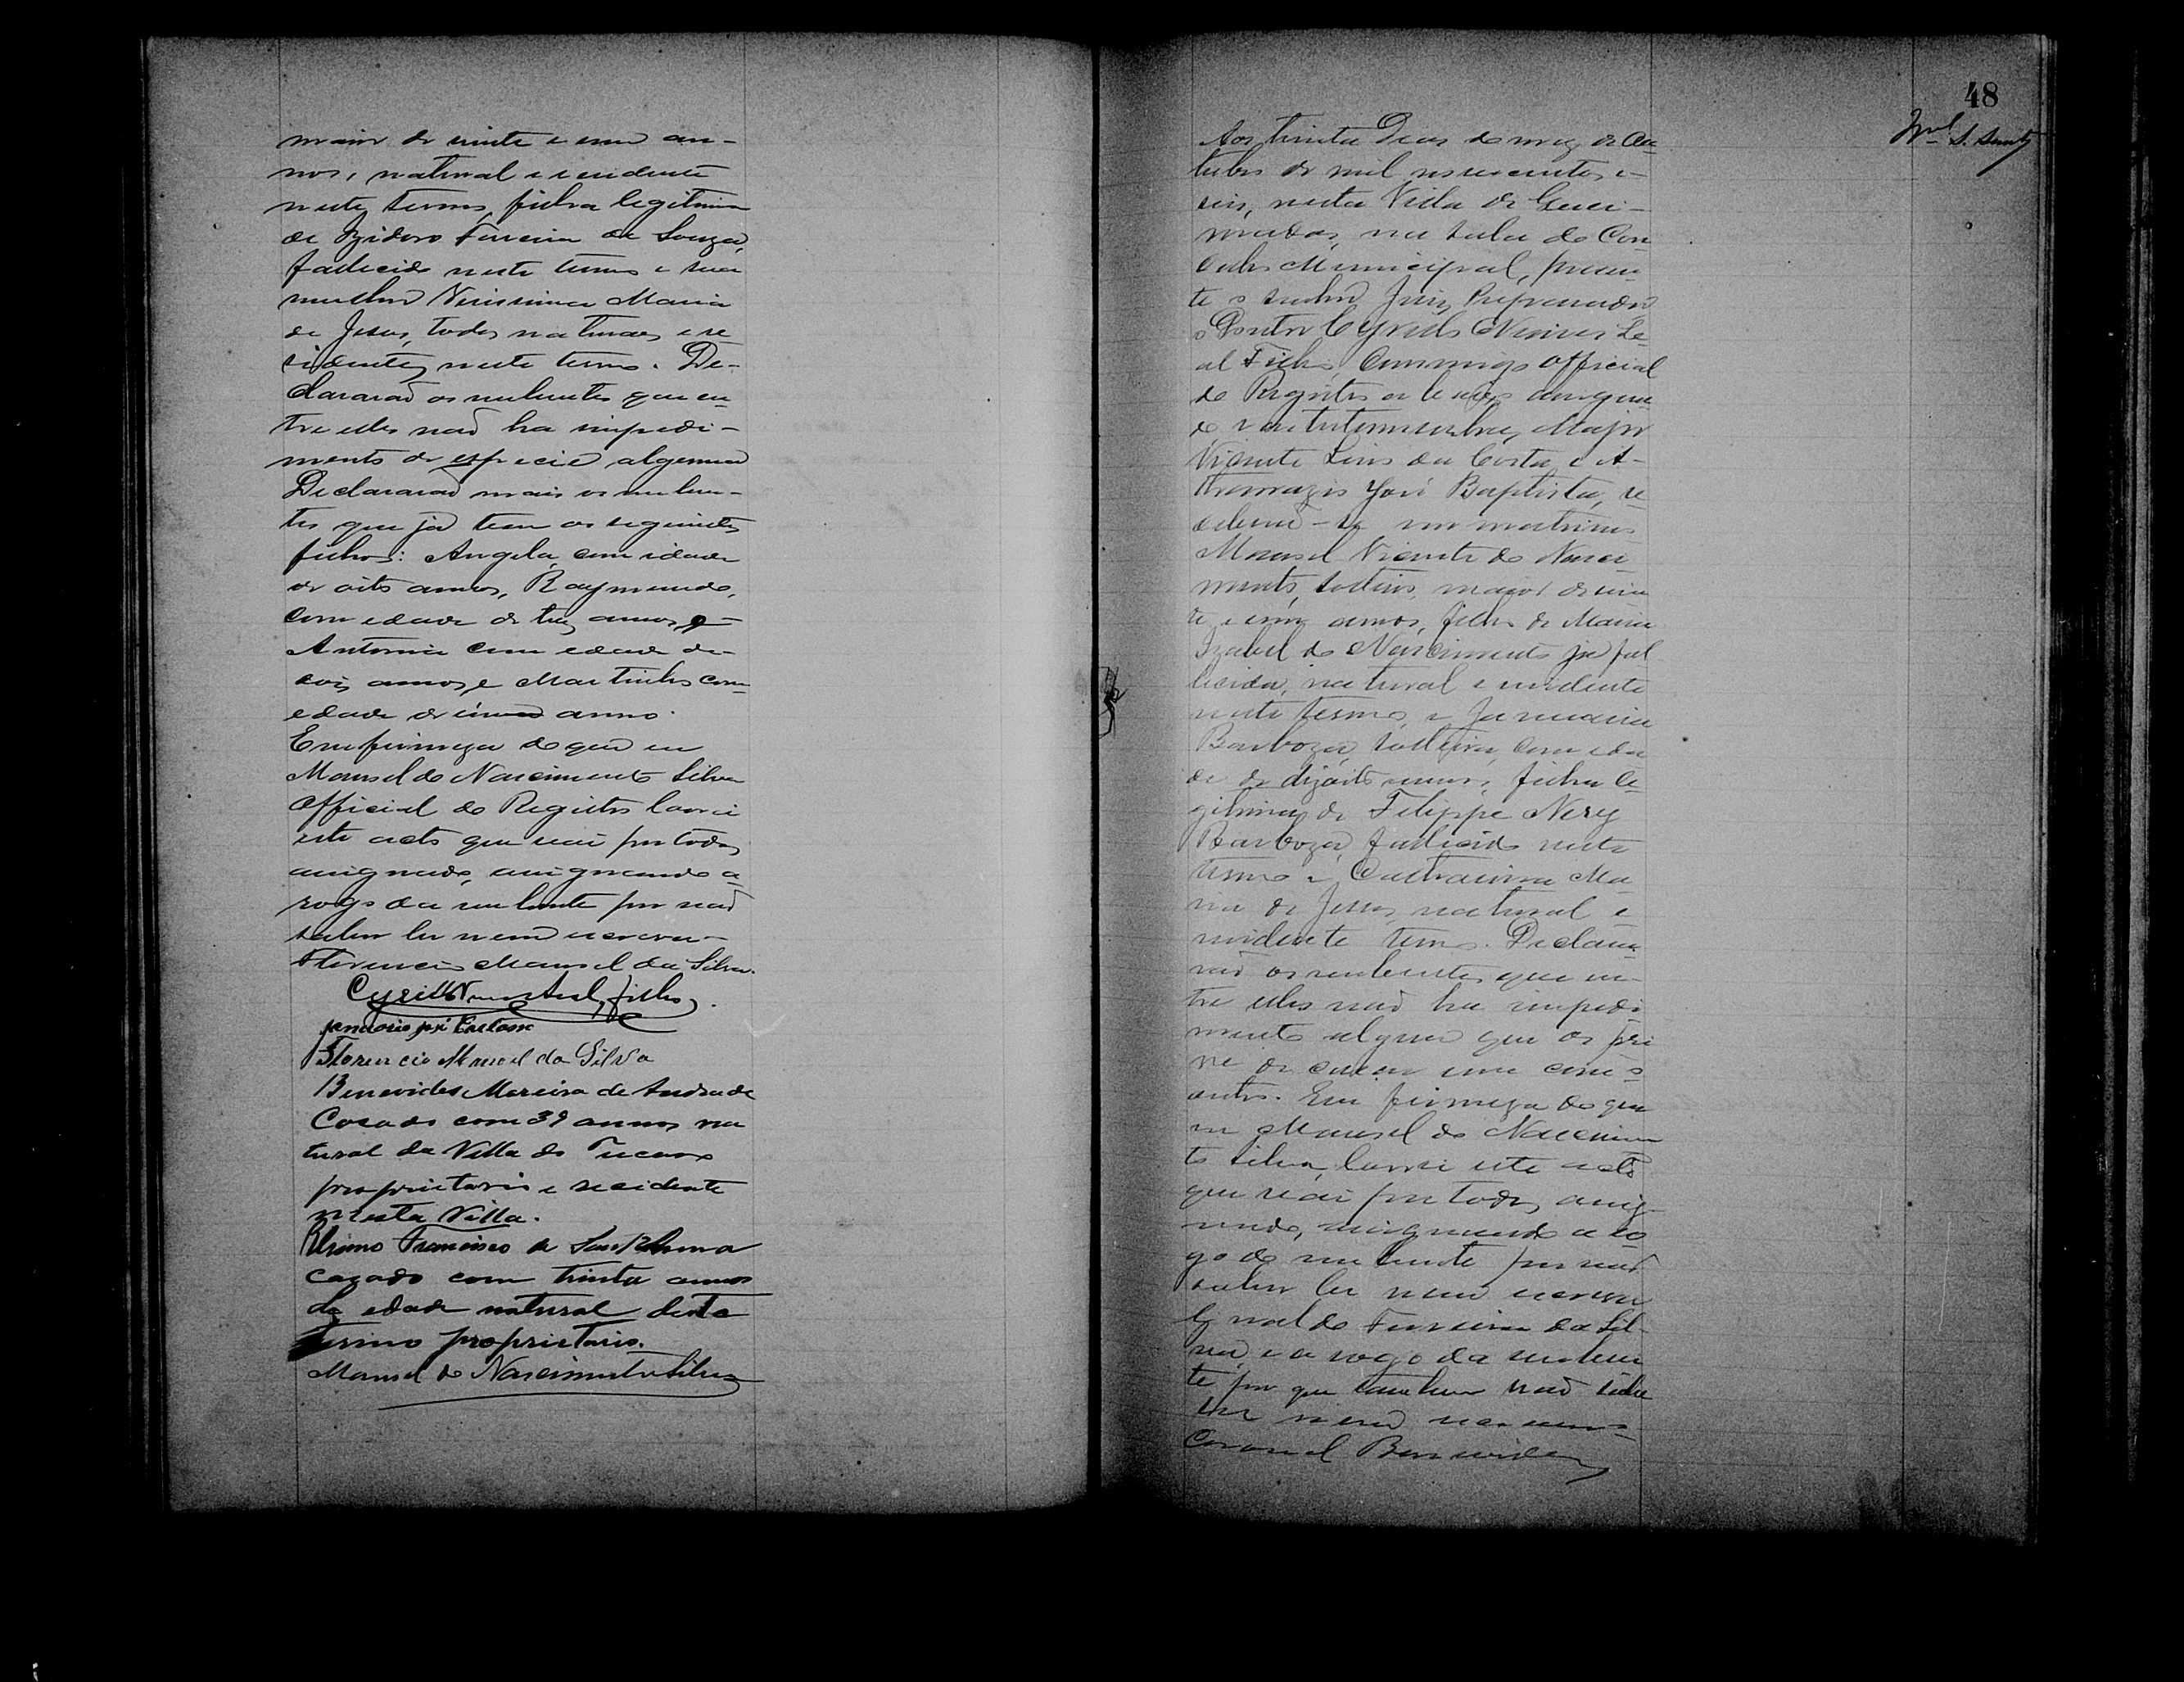 maior de vinte e um an-
nos, natural e residente
neste termo, filha legitima
de Izidoro Ferreira de Souza,
fallecido neste termo e sua
mulher Verissima Maria
de Jesus, todos naturaes e re-
sidentes neste termo. De-
clararaõ os nubentes que en-
tre elles naõ ha impedi-
mento de especie alguma
Declararaõ mais os nuben-
tes que já tem os seguintes
filhos: Angela, com idade
de oito annos, Raymundo,
com edade de tres annos, e
Antonia com edade de
dois annos, e Martinho com
edade de um anno.
Em firmeza do que eu
Manoel do Nascimento Silva
Official do Registro lavrei
este acto que vai por todos
assignado, assignando a
rogo da nubente por naõ
saber ler nem escrever
Florencio Manoel da Silva.
Cyrillo Nunes Leal filho.
Januario José Caetano
Florencio Manoel da Silva
Benevides Moreira de Andrade
Casado com 39 annos na
tural da Villa do Tucano
proprietario e residente
nesta Villa.
Francisco de
cazado com trinta annos
de edade natural deste
termo proprietario.
Manoel do Nascimento Silva
48
Aos trinta dias do mez de Ou
tubro de mil novecentos e
seis, nesta Villa de Quei-
madas, na sala do Con
celho Municipal, presen
te o senhor Juiz Preparador
o Doutor Cyrillo Nunes Le-
al Filho, commigo Official
do Registro a
do, e as testemunhas, Major
Vicente Lins da Costa e A-
thanazio José Baptista, re
ceberaõ-se em matrimo
Manoel Vicente do Nasci
mento, solteiro, maior de vin
te e um annos, filho de Maria
Izabel do Nascimento já fal
lecida, natural e residente
neste termo, e Januaria
Barboza, solteira, com eda
de de dizoito annos, filha le-
gitima de Felippe Nery
Barboza, fallecido neste
termo e Ma
ria de Jesus, natural e
residente termo. Declara
raõ os nubentes que en-
tre elles naõ ha impedi
mento algum que os pri
ve de cazar um com o
outro. Em firmeza do que
eu Manoel do Nascimen
to Silva, lavrei este acto
que vai por todos assig-
nado, assignando a ro
go do nubente por naõ
saber ler nem escrever
Ferreira da Sil-
va, e a rogo da nuben
te por que tambem naõ sabe
ler nem escrever o
Coronel Benevides